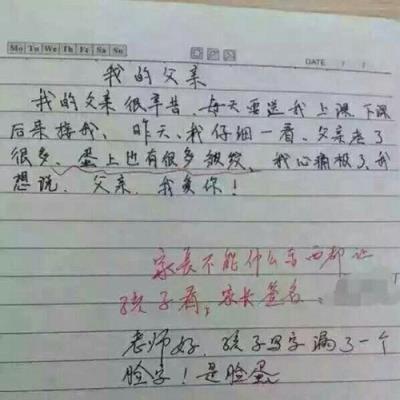 Mo Tu We Th Fr Sa Su
DATE / /
我的父亲
我的父亲很辛苦,每天要送我上课,下课
后来接我、昨天、我仔细一看、父亲老了
很多、蛋上也有很多皱纹、我心痛极了、我
想说,父亲,我爱你!
家长不能什么东西都让
孩子看,家长签名、
老师好,孩子写字漏了一个
脸字!是脸蛋